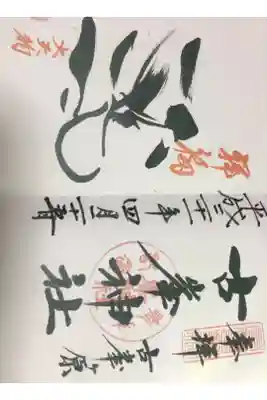 大天狗
奉拝
古峯神社
古峯ヶ原
平成三十一年四月二十日